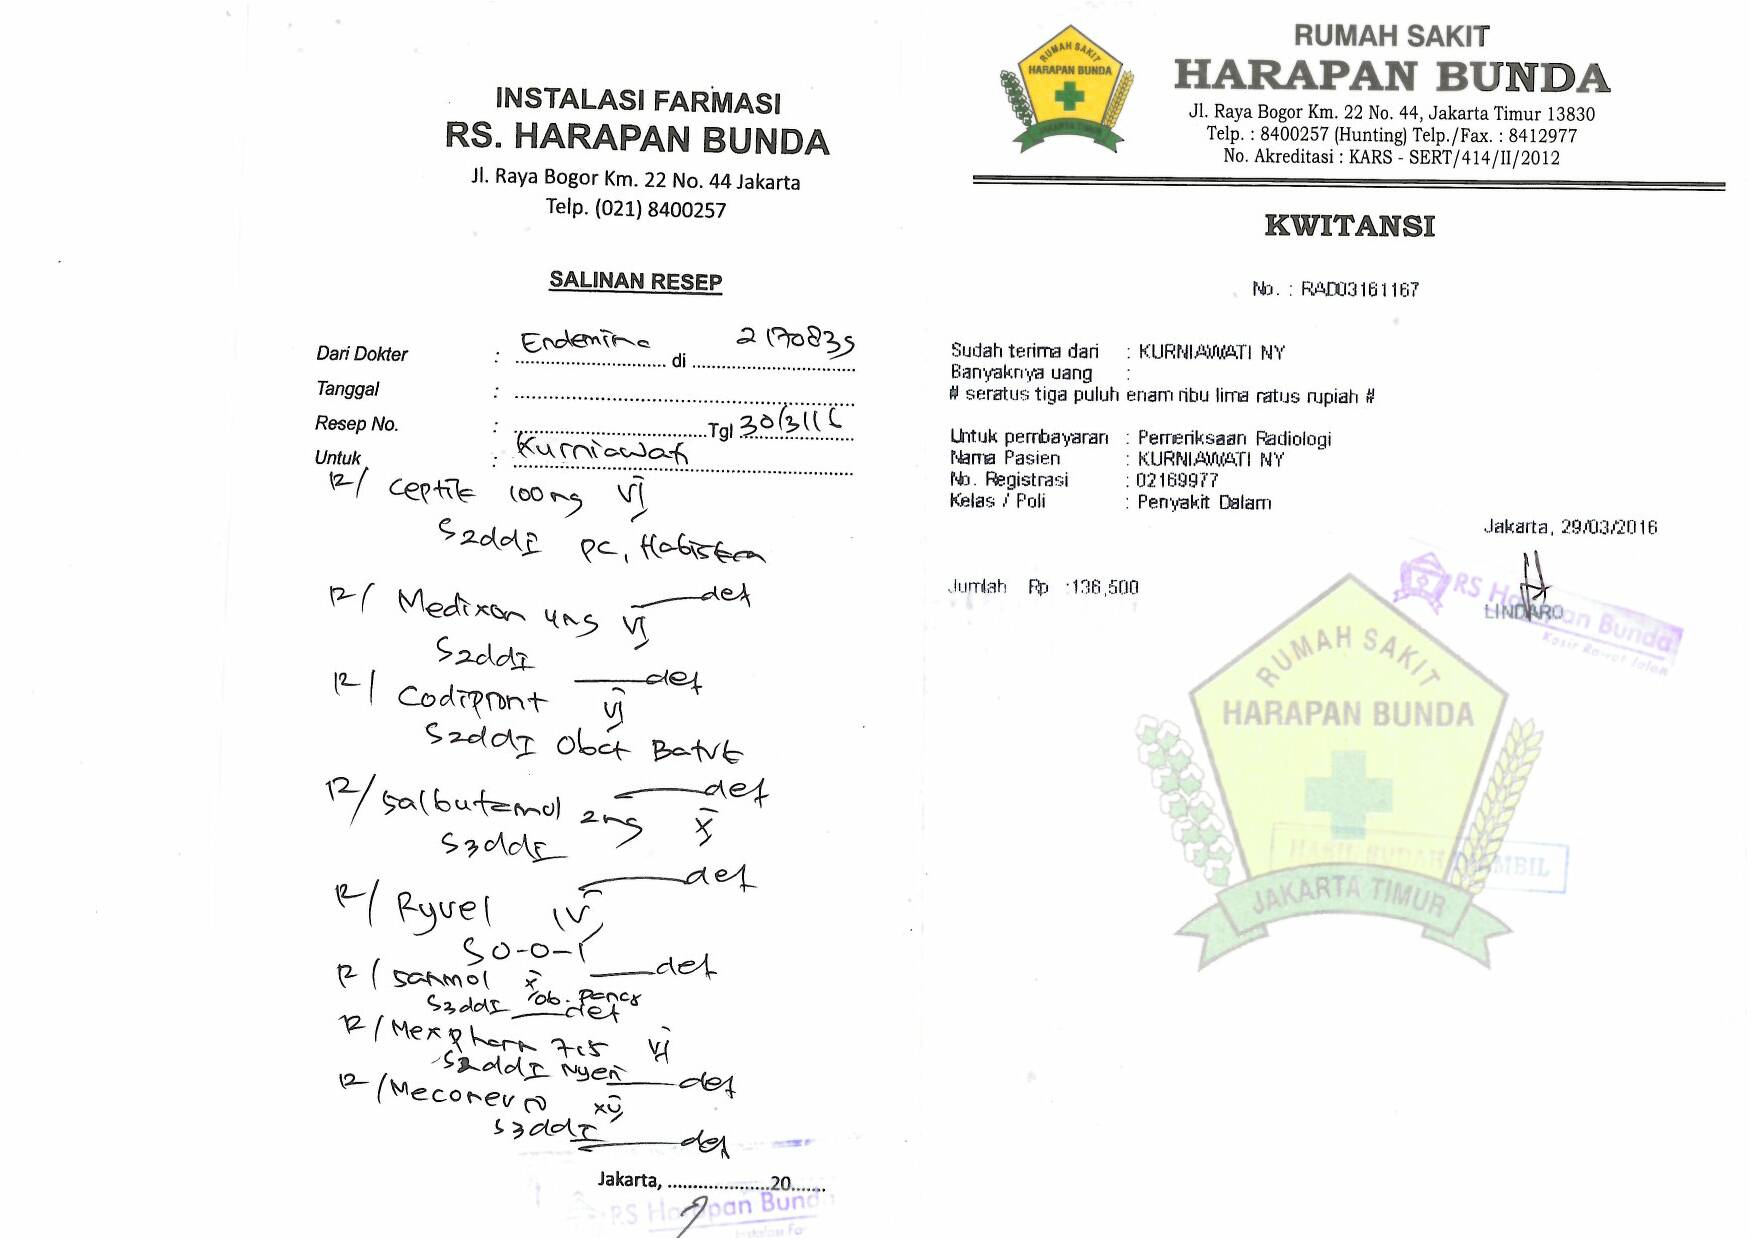 INSTALASI FARMASI
RS. HARAPAN BUNDA
Jl. Raya Bogor Km. 22 No. 44 Jakarta
Telp. (021) 8400257
SALINAN RESEP
Dari Dokter : Endemina di 2170835
Tanggal :
Resep No. : Tgl 30/3/16
Untuk : Kurniawati
R/ Ceptik 100 mg VI
S2ddI pc, Habiskan
R/ Medixon 4mg VI det
S2ddI
R/ Codipront VI det
S2ddI Obat Batuk
R/ Salbutamol 2mg X det
S3ddI
R/ Ryvel IV det
S 0-0-1
R/ Sanmol X det
S3ddI det
R/ Mexpharm 7.5 VI
S2ddI Nyeri det
R/ Meconeuro XV
S3ddI det
Jakarta, ....................20.......
RS Harapan Bunda
RUMAH SAKIT
HARAPAN BUNDA
JAKARTA TIMUR
RUMAH SAKIT
HARAPAN BUNDA
Jl. Raya Bogor Km. 22 No. 44, Jakarta Timur 13830
Telp. : 8400257 (Hunting) Telp./Fax. : 8412977
No. Akreditasi : KARS - SERT/414/II/2012
KWITANSI
No. : RAD03161167
Sudah terima dari : KURNIAWATI NY
Banyaknya uang :
# seratus tiga puluh enam ribu lima ratus rupiah #
Untuk pembayaran : Pemeriksaan Radiologi
Nama Pasien : KURNIAWATI NY
No. Registrasi : 02169977
Kelas / Poli : Penyakit Dalam
Jakarta, 29/03/2016
Jumlah Rp :136,500
RS Harapan Bunda
LINDARO
Kasir Rawat Jalan
RUMAH SAKIT
HARAPAN BUNDA
HASIL SUDAH DIAMBIL
JAKARTA TIMUR